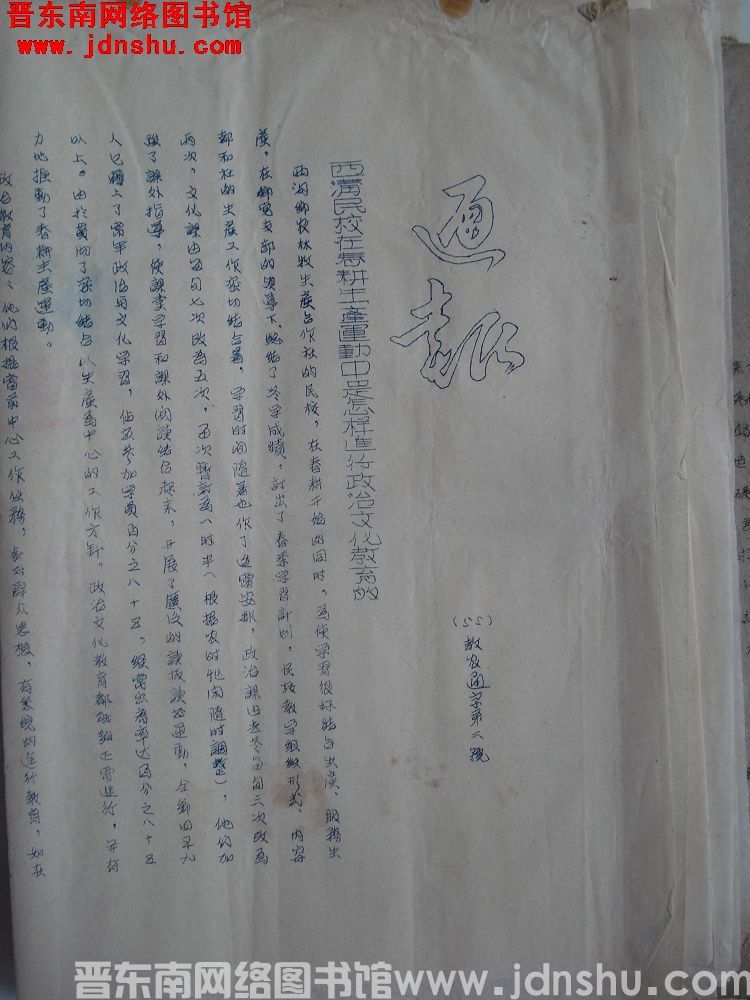 晋东南网络图书馆
www.jdnshu.com
通报
(55)教农通字第二號
西溝民校在春耕生產運動中是怎样進行政治文化教育的
西沟鄉农林牧生產合作社的民校，在春耕开始的同时，为使学習很好結合生產、服務生
產，在鄉党支部的領导下，總結了冬学成績，訂出了春季学習計划，民校教学組織形式、内容
都和社的生產工作密切結合着，学習时间隨着也作了适當安排，政治課由去冬每旬三次改為
两次，文化課由每旬七次改為五次，每次暫訂為一时半（根据农时忙闲隨时調整），他们加
強了課外指導，使課堂学習和課外阅讀結合起來，开展了廣泛的讀报讀書運動，全鄉四百九
人已轉上了常年政治与文化学習，佔應參加学員百分之八十五，經常出席率达百分之八十五
以上。由於貫彻了密切結合以生產為中心的工作方針，政治文化教育都能夠正常進行，并有
力地推動了春耕生產運動。
政治教育内容：他们根据當前中心工作任務，針对群众思想，有系統的進行教育，如在
晋东南网络图书馆www.jdnshu.com